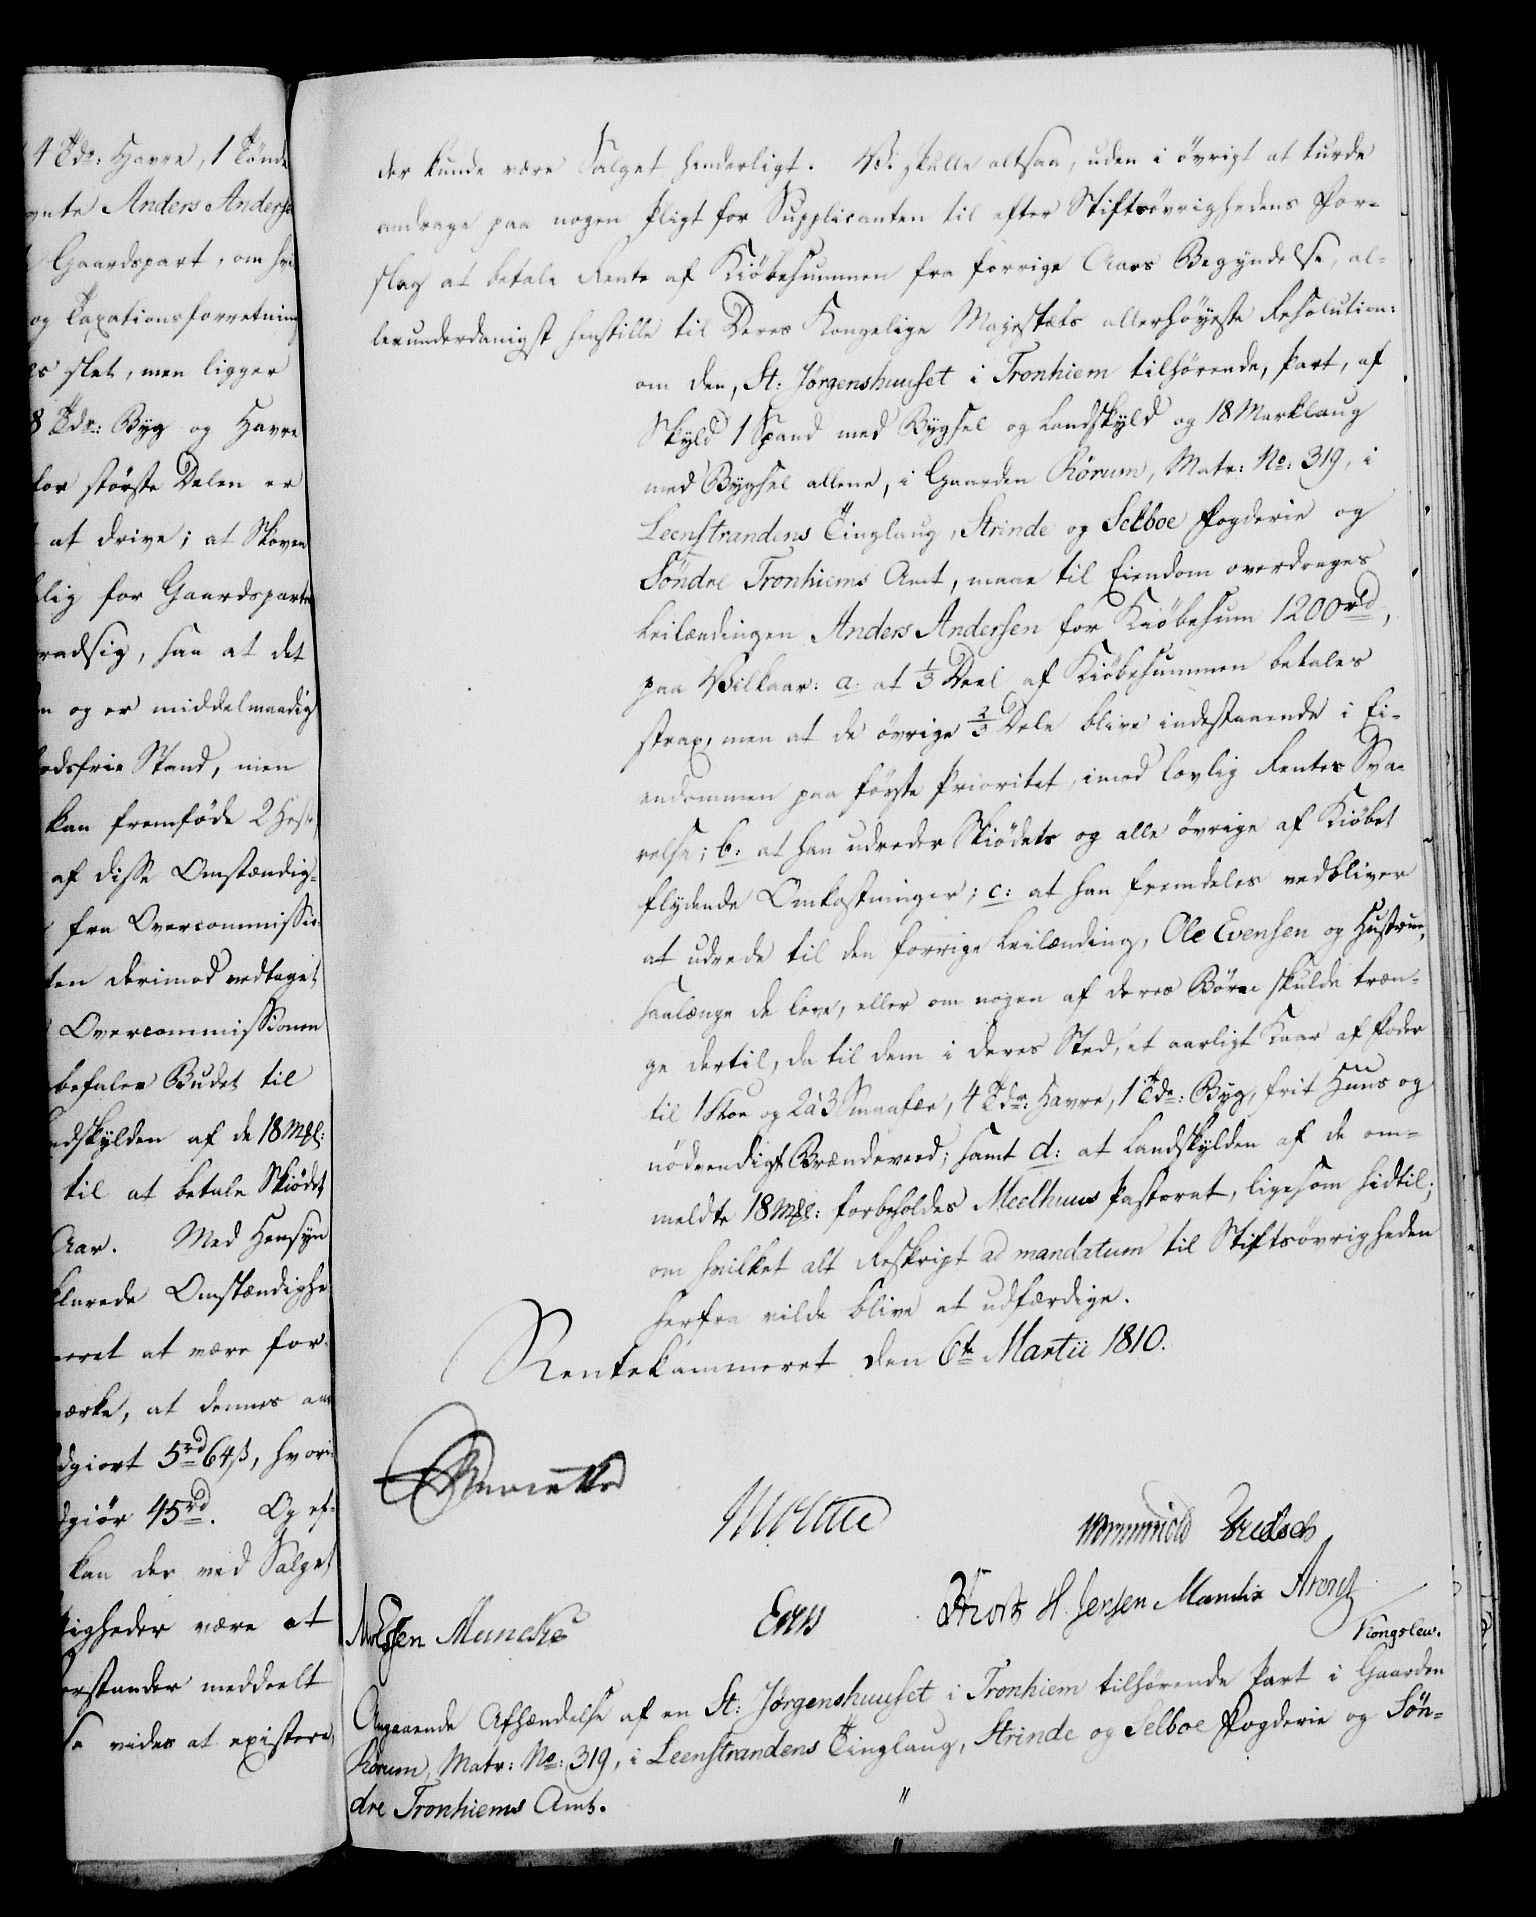 4 Tdr: Havre, 1 Tönde
Anders Anders
Gaardspart, om hvi
og Taxationsforretning
slet, men ligger
8 Tdr: Byg og Havre
for störste Delen er
at drive; at Skoven
lig for Gaardsparte
saa at det
og er middelmaadig
Stand, men
kan fremföde 2 Heste
af disse Omstændig-
fra Overcommissio
derimod vedtaget
Overcommissionen
befaler Budet til
ndskylden af de 18 Mkl:
til at betale Skiödet
Aar. Med Hensyn
klarede Omstændighe
at være for-
mærke, at dennes
dgiort 5rd 64s, hvori-
dgiör 45rd. Og ef-
kan der ved Salget
tigheder være at
meddeelt
vides at existere,
der kunde være Salget hinderligt. Vi skulle altsaa, uden i övrigt at turde
andrage paa nogen Pligt for Supplicanten til efter Stiftsövrighedens For-
slag at betale Rente af Kiöbesummen fra forrige Aars Begyndelse, al-
lerunderdanigst henstille til Deres Kongelige Majestæts allerhöyeste Resolution:
om den, St: Jörgenshuuset i Tronhiem tilhörende, Part, af
Skyld 1 Spand med Bygsel og Landskyld og 18 Marklaug
med Bygsel allene, i Gaarden Rörum, Matr: No: 319, i
Leenstrandens Tinglaug, Strinde og Selboe Fogderie og
Söndre Tronhiems Amt, maae til Eiendom overdrages
Leilændingen Anders Andersen for Kiöbesum 1200rd,
paa Vilkaar: a: at 1/3 Deel af Kiöbesummen betales
strax, men at de övrige 2/3 Dele blive indestaaende i Ei-
endommen paa förste Prioritet, imod lovlig Rentes Sva-
relse; b: at han udreder Skiödets og alle övrige af Kiöbet
flydende Omkostninger; c: at han fremdeles vedbliver
at udrede til den forrige Leilænding, Ole Evensen og Hustrue,
saalænge de leve, eller om nogen af deres Börn skulde træn-
ge dertil, da til dem i deres Sted, et aarligt Kaar af Foder
til 1 Koe og 2 à 3 Smaafæe, 4 Tdr: Havre, 1 Tde: Byg, frit Huus og
nödvendigt Brændeveed; samt d: at Landskylden af de om-
meldte 18 Mkl: forbeholdes Meelhuus Pastorat, ligesom hidtil;
om hvilket alt Reskript ad mandatum til Stiftsövrigheden
herfra vilde blive at udfærdige.
Rentekammeret den 6te Martii 1810.
Moltke
Wormskiold
M Essen Muncke Hvortz H. Jensen Mandix Arentz
Kongslew.
Angaaende Afhændelse af en St: Jörgenshuuset i Tronhiem tilhörende Part i Gaarden
Rörum, Matr: No: 319, i Leenstrandens Tinglaug, Strinde og Selboe Fogderie og Sön-
dre Tronhiems Amt.